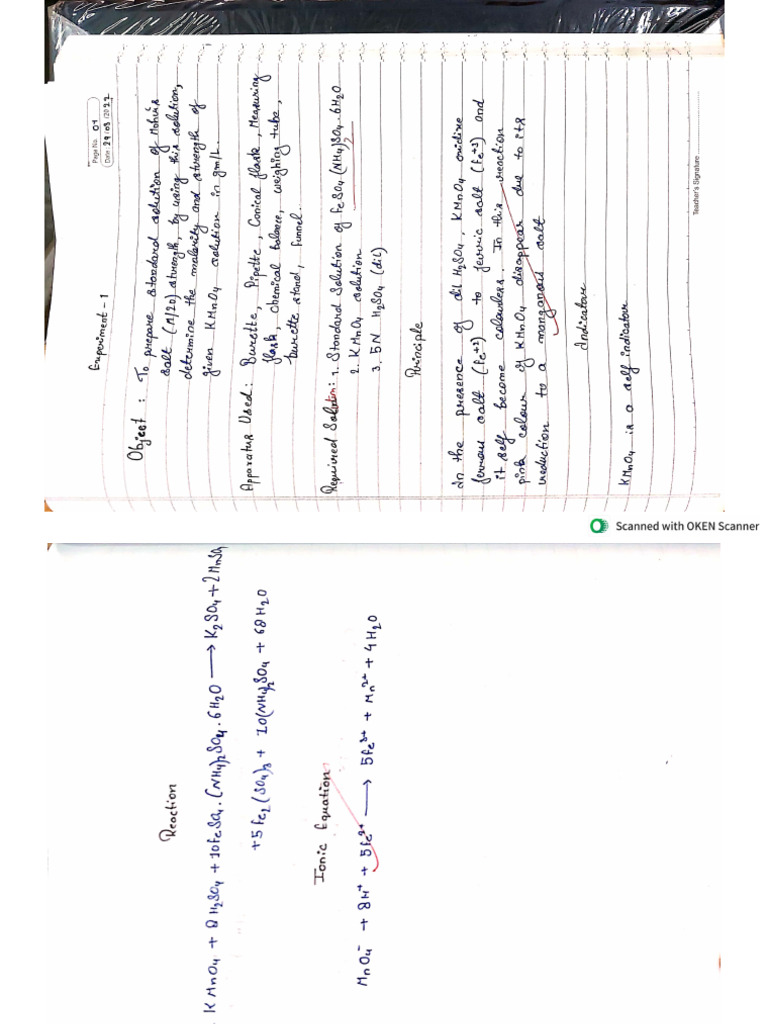 Page No. 01
Date 29/03/2022
Experiment - 1
Object : To prepare standard solution of Mohr's
salt (M/20) strength, by using this solution,
determine the molarity and strength of
given KMnO4 solution in gm/L.
Apparatus Used: Burette, Pipette, Conical flask, Measuring
flask, chemical balance, weighing tube,
burette stand, funnel.
Required Solution: 1. Standard Solution of FeSO4.(NH4)2SO4.6H2O
2. KMnO4 solution
3. 5N H2SO4 (dil)
Principle
In the presence of dil H2SO4, KMnO4 oxidise
ferrous salt (fe+2) to ferric salt (fe+3) and
it self become colourless. In this reaction
pink colour of KMnO4 disappear due to its
reduction to a manganous salt
Indicator
KMnO4 is a self indicator
Teacher's Signature
Scanned with OKEN Scanner
Reaction
KMnO4 + 8H2SO4 + 10FeSO4.(NH4)2SO4.6H2O → K2SO4 + 2MnSO4
+5Fe2(SO4)3 + 10(NH4)2SO4 + 68H2O
Ionic Equation
MnO4- + 8H+ + 5fe2+ → 5fe3+ + Mn2+ + 4H2O